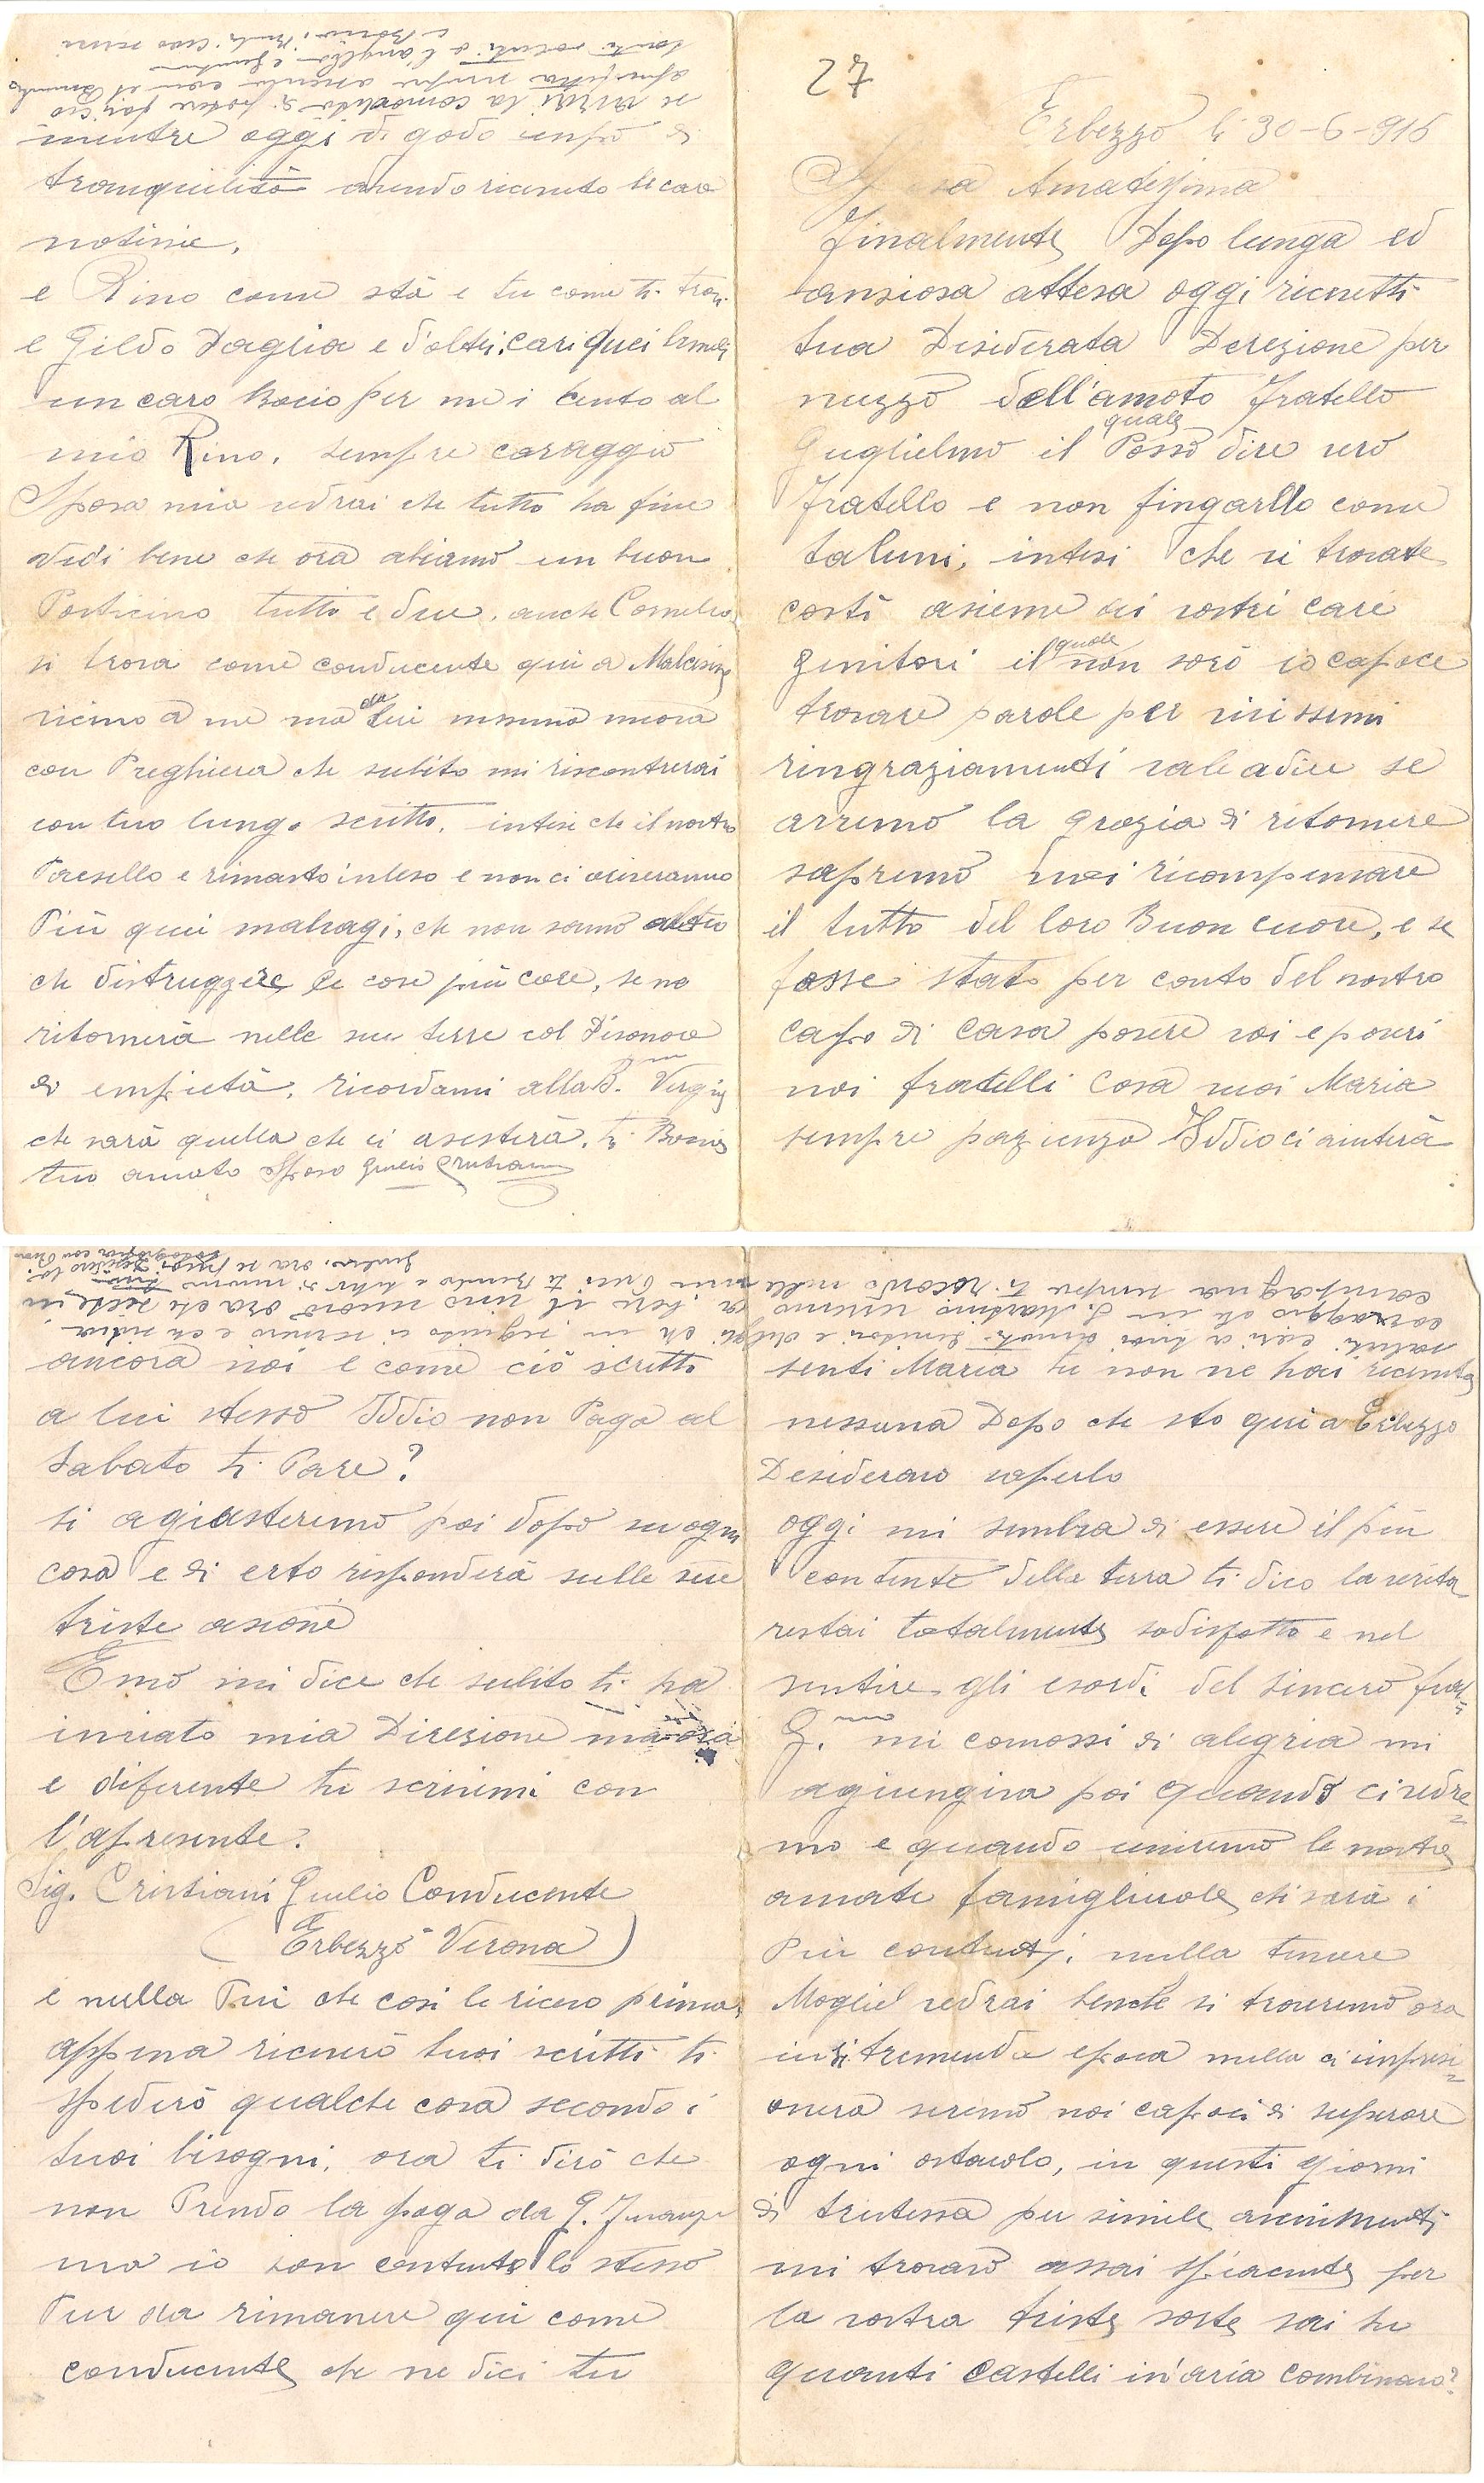 27
Erbezzo li 30-6-916
Sposa Amatissima
Finalmente Dopo lunga ed
ansiosa attesa oggi ricevetti
tua Desiderata Derezione per
mezzo dell'amato Fratello
quale
Guglielmo il Posso dire vero
Fratello e non fingarllo come
taluni, intesi che vi trovate
costi asieme dei vostri cari
quale
genitori il non sarò io capace
trovare parole per vivissimi
ringraziamenti vale a dire se
avremo la grazia di ritornare
sapremo noi ricompensare
il tutto del loro Buon cuore, e se
fosse stato per conto del nostro
capo di casa povere voi e poveri
noi fratelli cosa vuoi Maria
sempre pazienza Iddio ci aiuterà
ancora noi e come ciò scritto
a lui stesso Iddio non Paga al
Sabato ti Pare?
si agiusteremo poi dopo su ogni
cosa e di certo risponderà sulle sue
triste asione
Emo mi dice che subito ti ha
inviato mia Diresione ma ora
e diferente tu scrivimi con
l'apresente:
Sig. Cristiani Giulio Conducente
(Erbezzo Verona)
e nulla Più che cosi le ricevo prima,
appena riceverò tuoi scritti ti
spederò qualche cosa secondo i
tuoi bisogni, ora ti dirò che
non Prendo la paga da G. Finanza
ma io son contento lo stesso
Pur da rimanere qui come
conducente che ne dici tu
senti Maria tu non ne hai ricevuta
nessuna Dopo che sto qui a Erbezzo
Desideravo saperlo
oggi mi sembra di essere il più
contente della terra ti dico la verita
restai totalmente sodisfatto e nel
sentire gli esordi del sincero frat.
G.mo mi comossi di alegria mi
agiungeva poi quando ci vedre=
mo e quando uniremo le nostre
amate famigliuole chi sarà i
Più contenti, nulla temere
Moglie vedrai benche si troveremo ora
in si tremenda epoca nulla ci impresi=
onera saremo noi capaci di superare
ogni ostacolo, in questi giorni
di tristessa per simile avvenimenti
mi trovavo assai spiacente per
la vostra triste sorte sai tu
quanti castelli in'aria combinavo?
mentre oggi di godo un po di
tranquilità avendo ricevuto le care
notisie.
e Rino come stà e tu come ti trovi
e Gildo Daglia e d'oltri, cari quei bimbi
un caro Bacio per me i cento al
mio Rino, sempre coraggio
Sposa mia vedrai che tutto ha fine
vedi bene che ora abiamo un buon
Posticino tutti e due, anche Cornelio
si trova come conducente qui a Malcesine
da
vicino a me ma lui nessuna nuova
con Preghiera che subito mi riscontrerai
con tuo lungo scritto, intesi che il nostro
Paesello e rimasto inleso e non ci ariveranno
Più quei malvagi, che non sanno altro
che distruggere le cose più care, se no
ritornerà nelle sue terre col Disonore
di empietà, ricordami alla B. Vergine
che sarà quella che ci asesterà, ti Bacio
tuo amato Sposo Giulio Cristiani
saluti cari a tuoi amati Genitori
coraggio che in S. Martino usiremo
campagna sempre ti ricordo nelle
se avrai la comodità di potere farci
tanti saluti a l'angelo
e Bacio, ciao